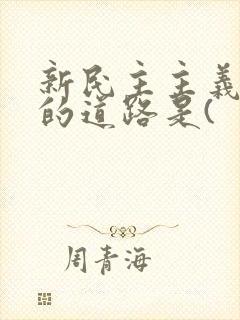 新民主主义
的道路是(
周青海